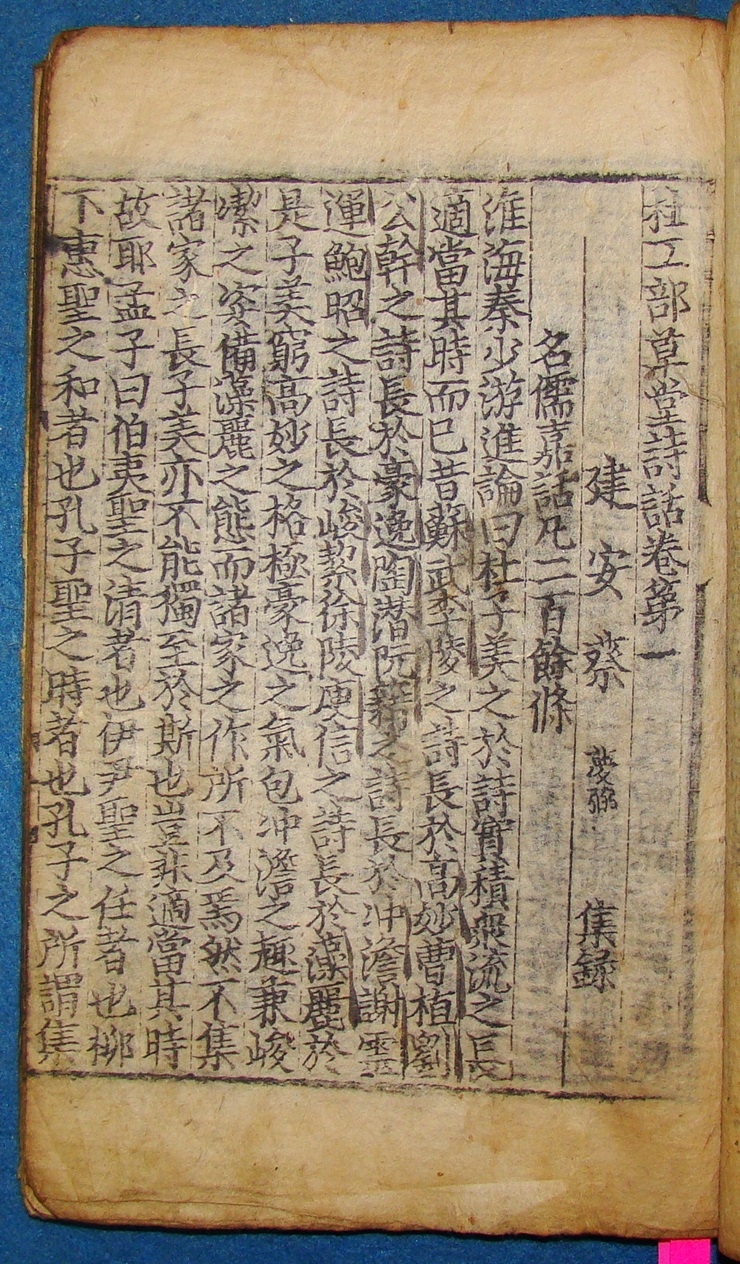 杜工部草堂詩話卷第一
建安蔡夢弼集錄
名儒嘉話凡二百餘條
淮海秦少游進論曰杜子美之於詩實積衆流之長
適當其時而已昔蘇武李陵之詩長於高妙曹植劉
公幹之詩長於豪逸陶潛阮籍之詩長於冲澹謝靈
運鮑昭之詩長於峻潔徐陵庾信之詩長於藻麗於
是子美窮高妙之格極豪逸之氣包冲澹之趣兼峻
潔之姿備藻麗之態而諸家之作所不及焉然不集
諸家之長子美亦不能獨至於斯也豈非適當其時
故耶孟子曰伯夷聖之清者也伊尹聖之任者也栁
下惠聖之和者也孔子聖之時者也孔子之所謂集